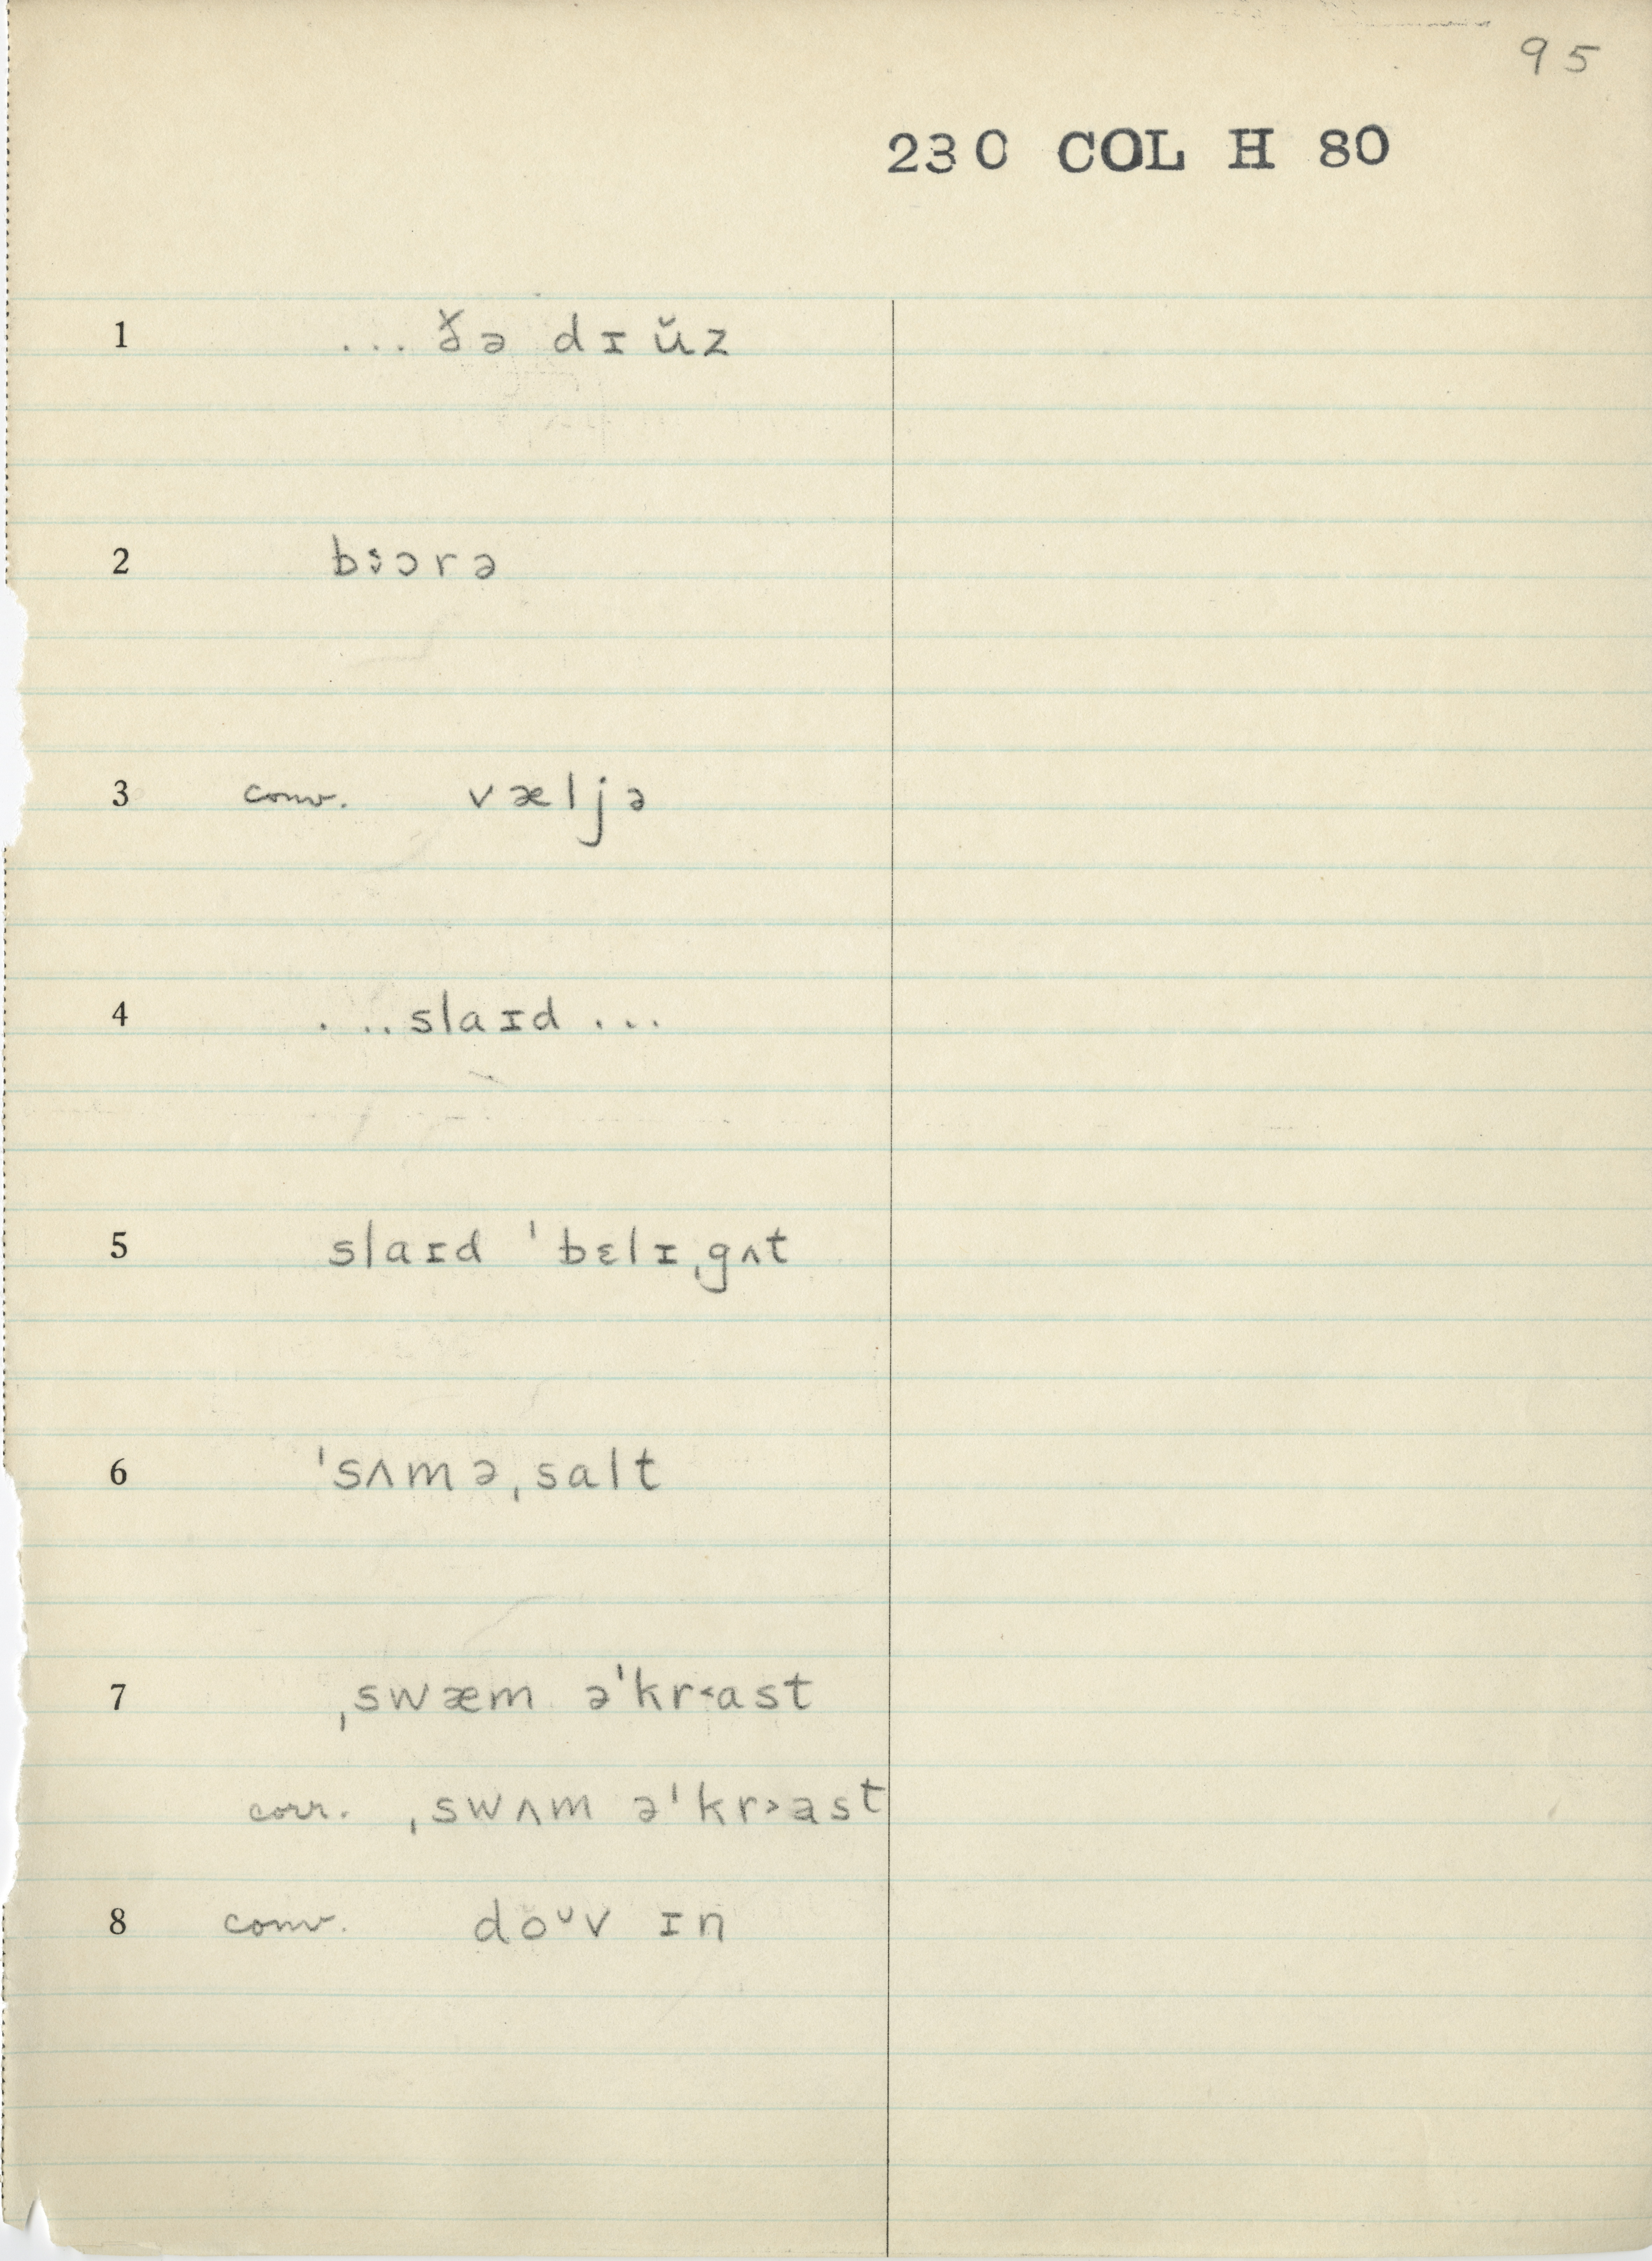 95
230 COL H 80
1 ... ðə dɪŭz
2 b˞ɔrə
3 conv. væljə
4 ... slaɪd ...
5 slaɪd ˈbɛlɪˌgʌt
6 ˈsʌməˌsalt
7 ˌswæm əˈkr˂ast
corr. ˌswʌm əˈkr˃ast
8 conv. doᵕv ɪn